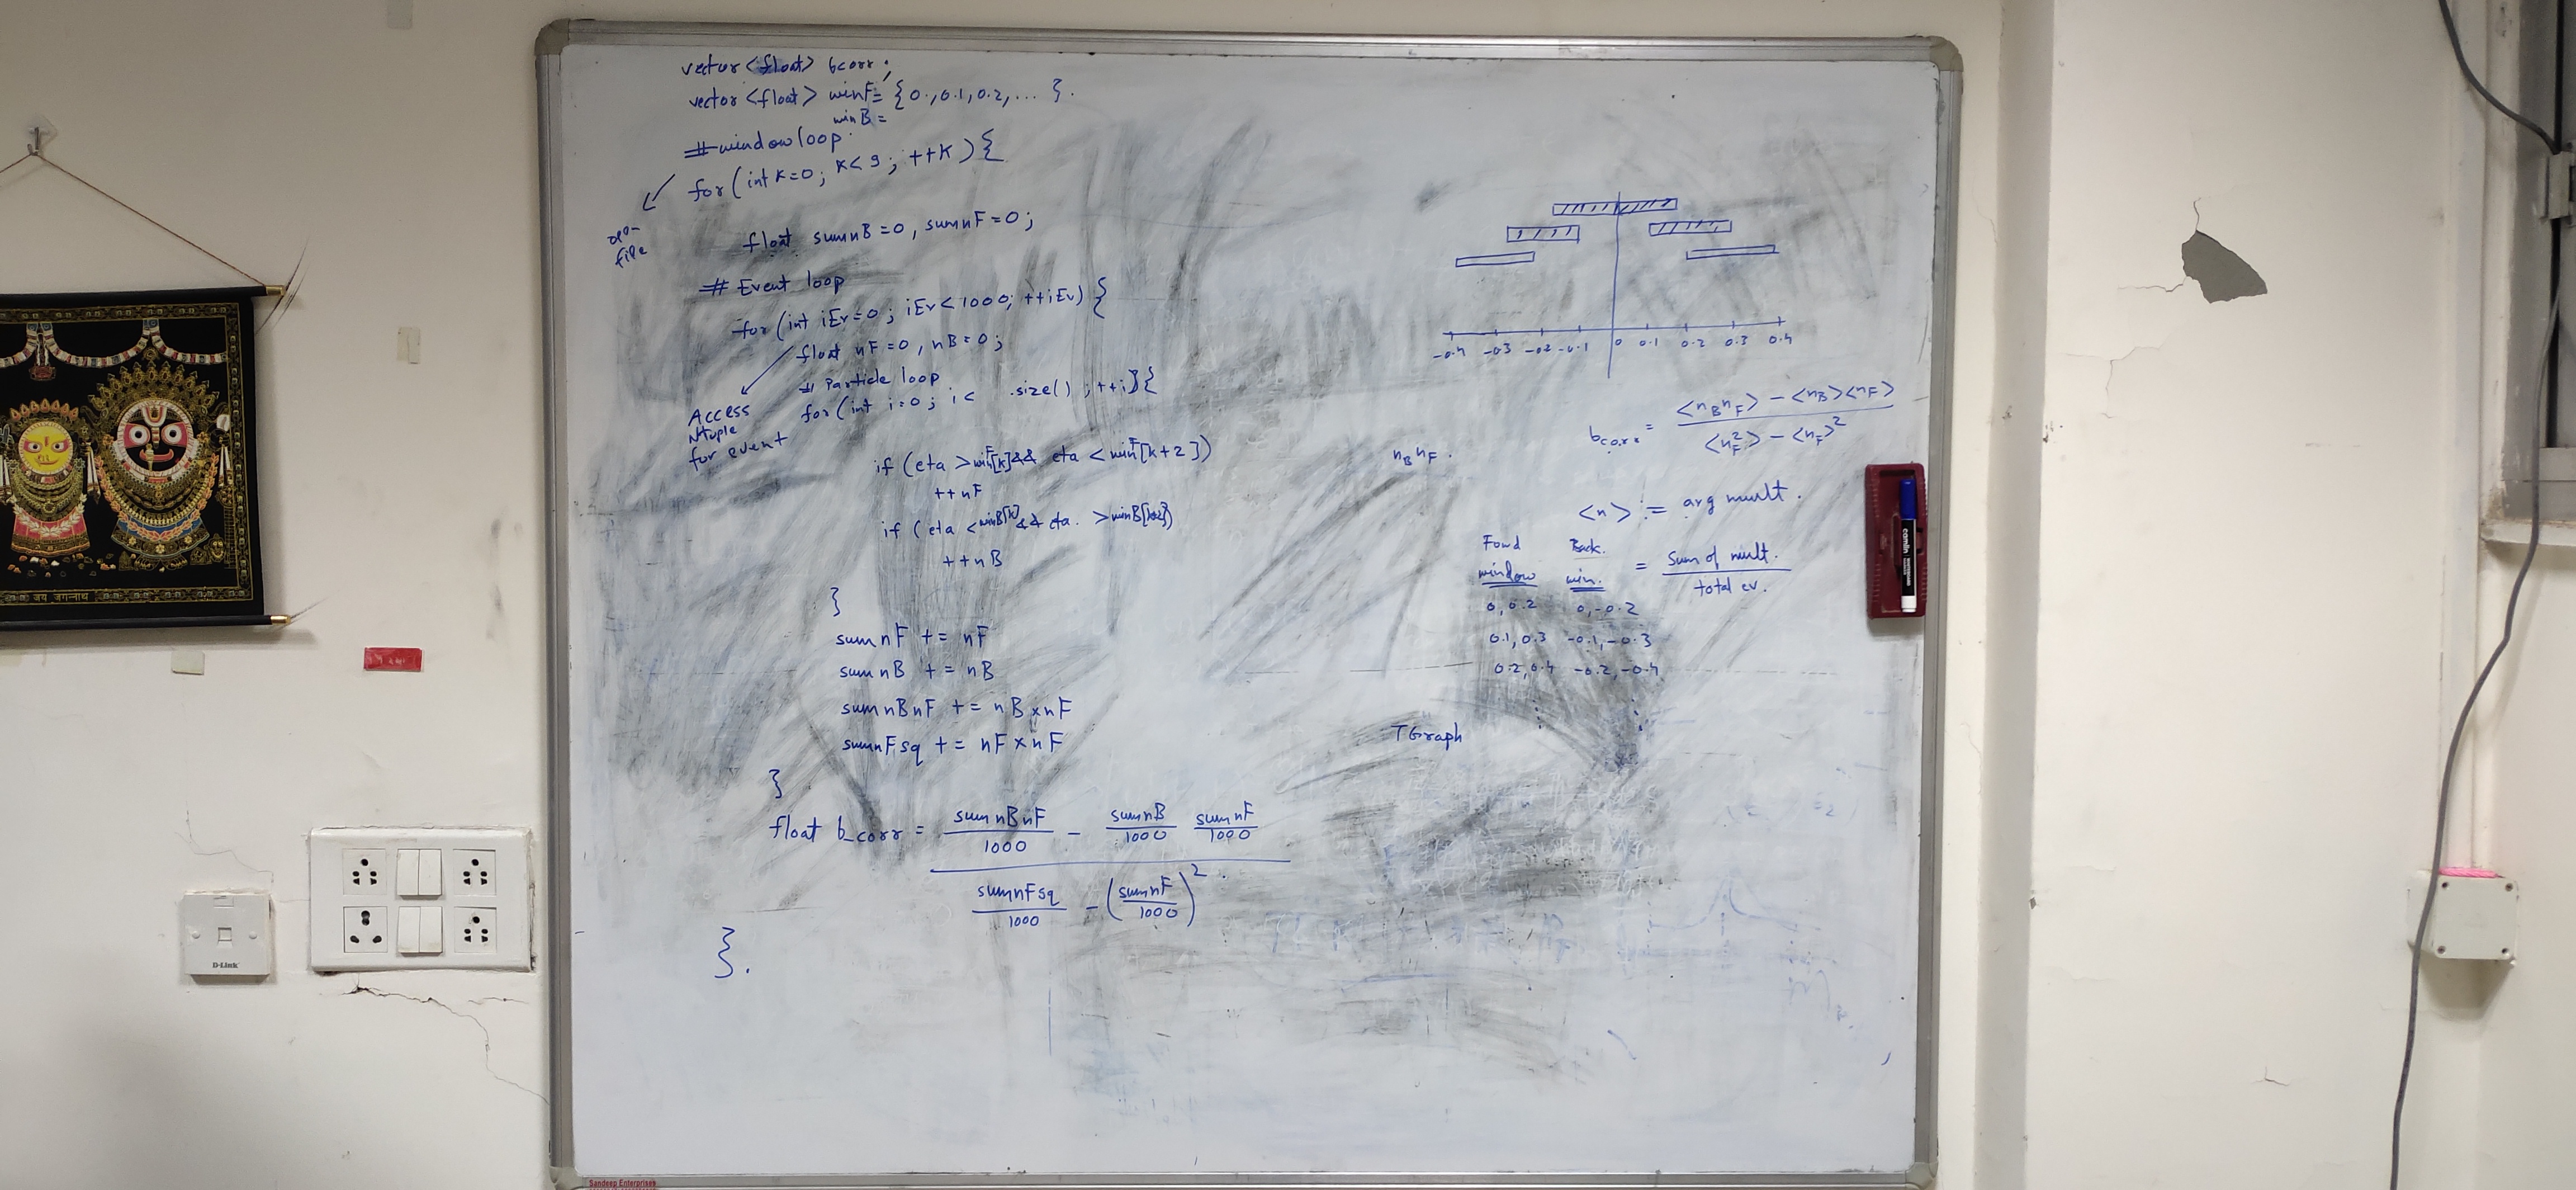 vector<float> bcorr;
vector<float> winF = {0., 0.1, 0.2, ... }.
winB =
# window loop
for (int k=0; k<9; ++k) {
file
float sumnB = 0, sumnF = 0;
# Event loop
for (int iEv=0; iEv<1000; ++iEv) {
float nF = 0, nB = 0;
# Particle loop
for (int i=0; i< .size(); ++i) {
Access
Ntuple
for event
if (eta > winF[k] && eta < winF[k+2])
++nF
if (eta < winB[k] && eta. > winB[k+2])
++nB
}
sumnF += nF
sumnB += nB
sumnBnF += nB x nF
sumnFsq += nF x nF
}
float b_corr = sumnBnF/1000 - sumnB/1000 sumnF/1000
sumnFsq/1000 - (sumnF/1000)^2.
}.
-0.4 -0.3 -0.2 -0.1 0 0.1 0.2 0.3 0.4
b_corr = <n_B n_F> - <n_B><n_F> / <n_F^2> - <n_F>^2
n_B n_F.
<n> := avg mult.
= Sum of mult. / total ev.
Fowd Back.
window win.
0, 0.2 0, -0.2
0.1, 0.3 -0.1, -0.3
0.2, 0.4 -0.2, -0.4
TGraph
camlin
जय जगन्नाथ
D-Link
Sandeep Enterprises